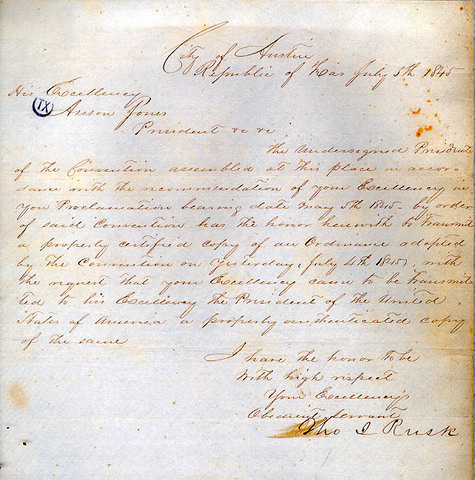 City of Austin
Republic of Texas July 5th 1845
His Excellency
IX
Anson Jones
President &c &c
The Undersigned President
of the Convention assembled at this place in accor-
dance with the recommendation of your Excellency in
your Proclamation bearing date May 5th 1845 by order
of said Convention has the honor herewith to transmit
a properly certified copy of an Ordinance adopted
by the Convention on Yesterday, July 4th 1845, with
the request that your Excellency cause to be transmit
ted to his Excellency the President of the United
States of America a properly authenticated copy
of the same
I have the honor to be
With high respect
Your Excellency's
Obedient Servant
Tho J Rusk